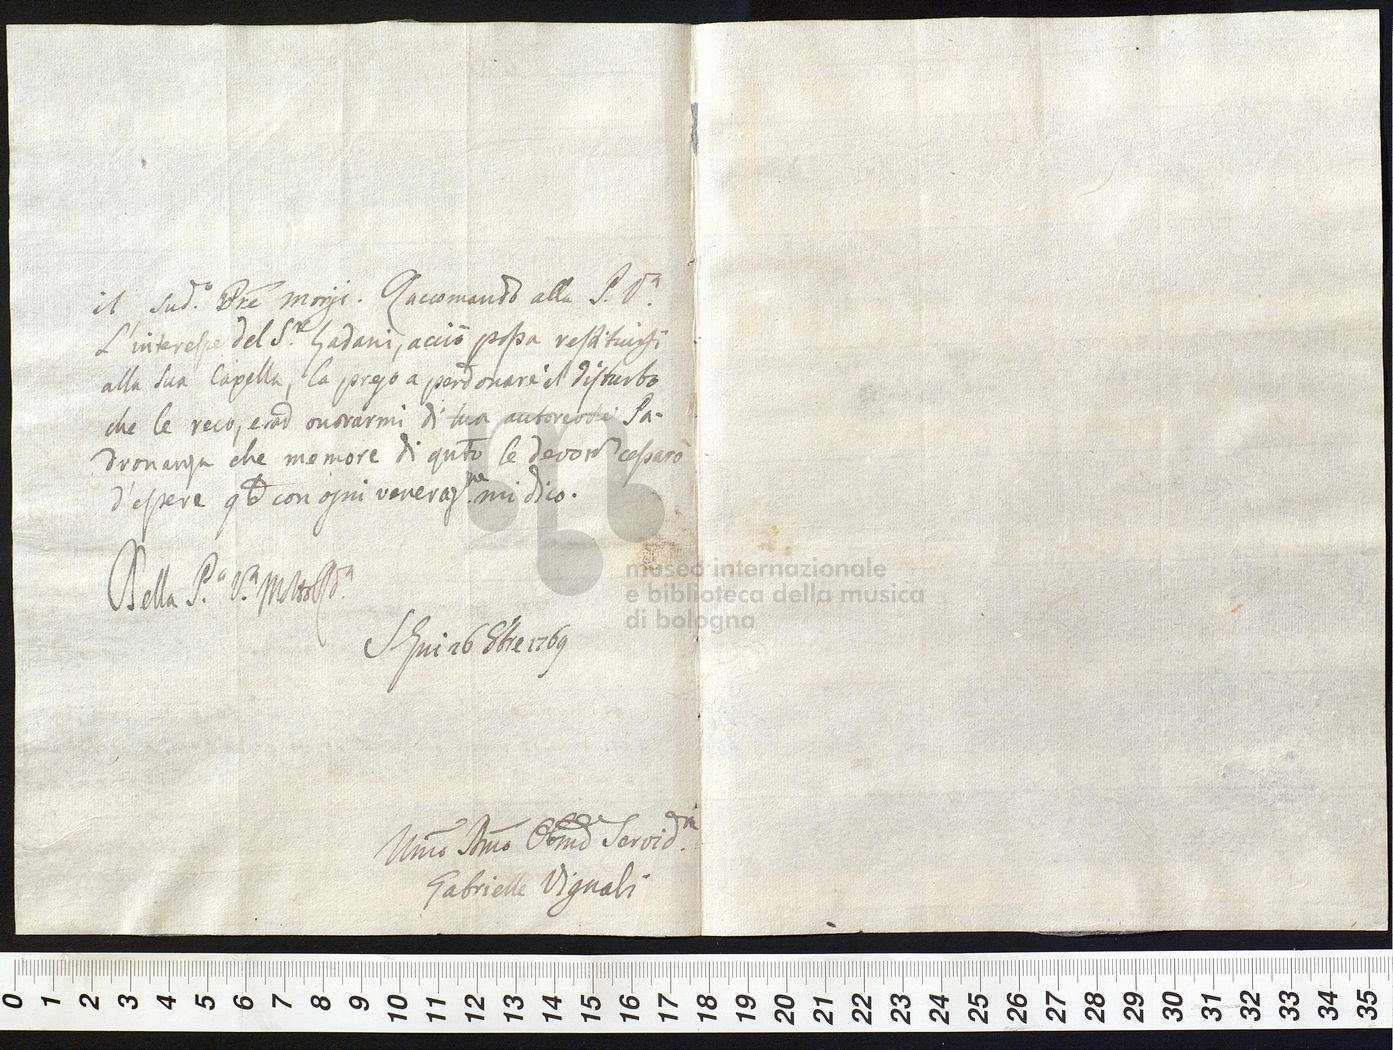 il sud.o Pre Monzi. Raccomando alla P. V.a
L'interesse del S.re Gadani, acciò possa restituirsi
alla sua Capella, la prego a perdonare il disturbo
che le reco, e ad onorarmi di sua autorevole Pa-
dronanza che memore di qnto le devo cessarò
d'essere qdo con ogni veneraz.ne mi dico.
Della P.a V.a Molto Rd.a
S. Gui 26 8bre 1769
Umo Dmo Obmo Servid.re
Gabrielle Vignali
museo internazionale
e biblioteca della musica
di bologna
0 1 2 3 4 5 6 7 8 9 10 11 12 13 14 15 16 17 18 19 20 21 22 23 24 25 26 27 28 29 30 31 32 33 34 35